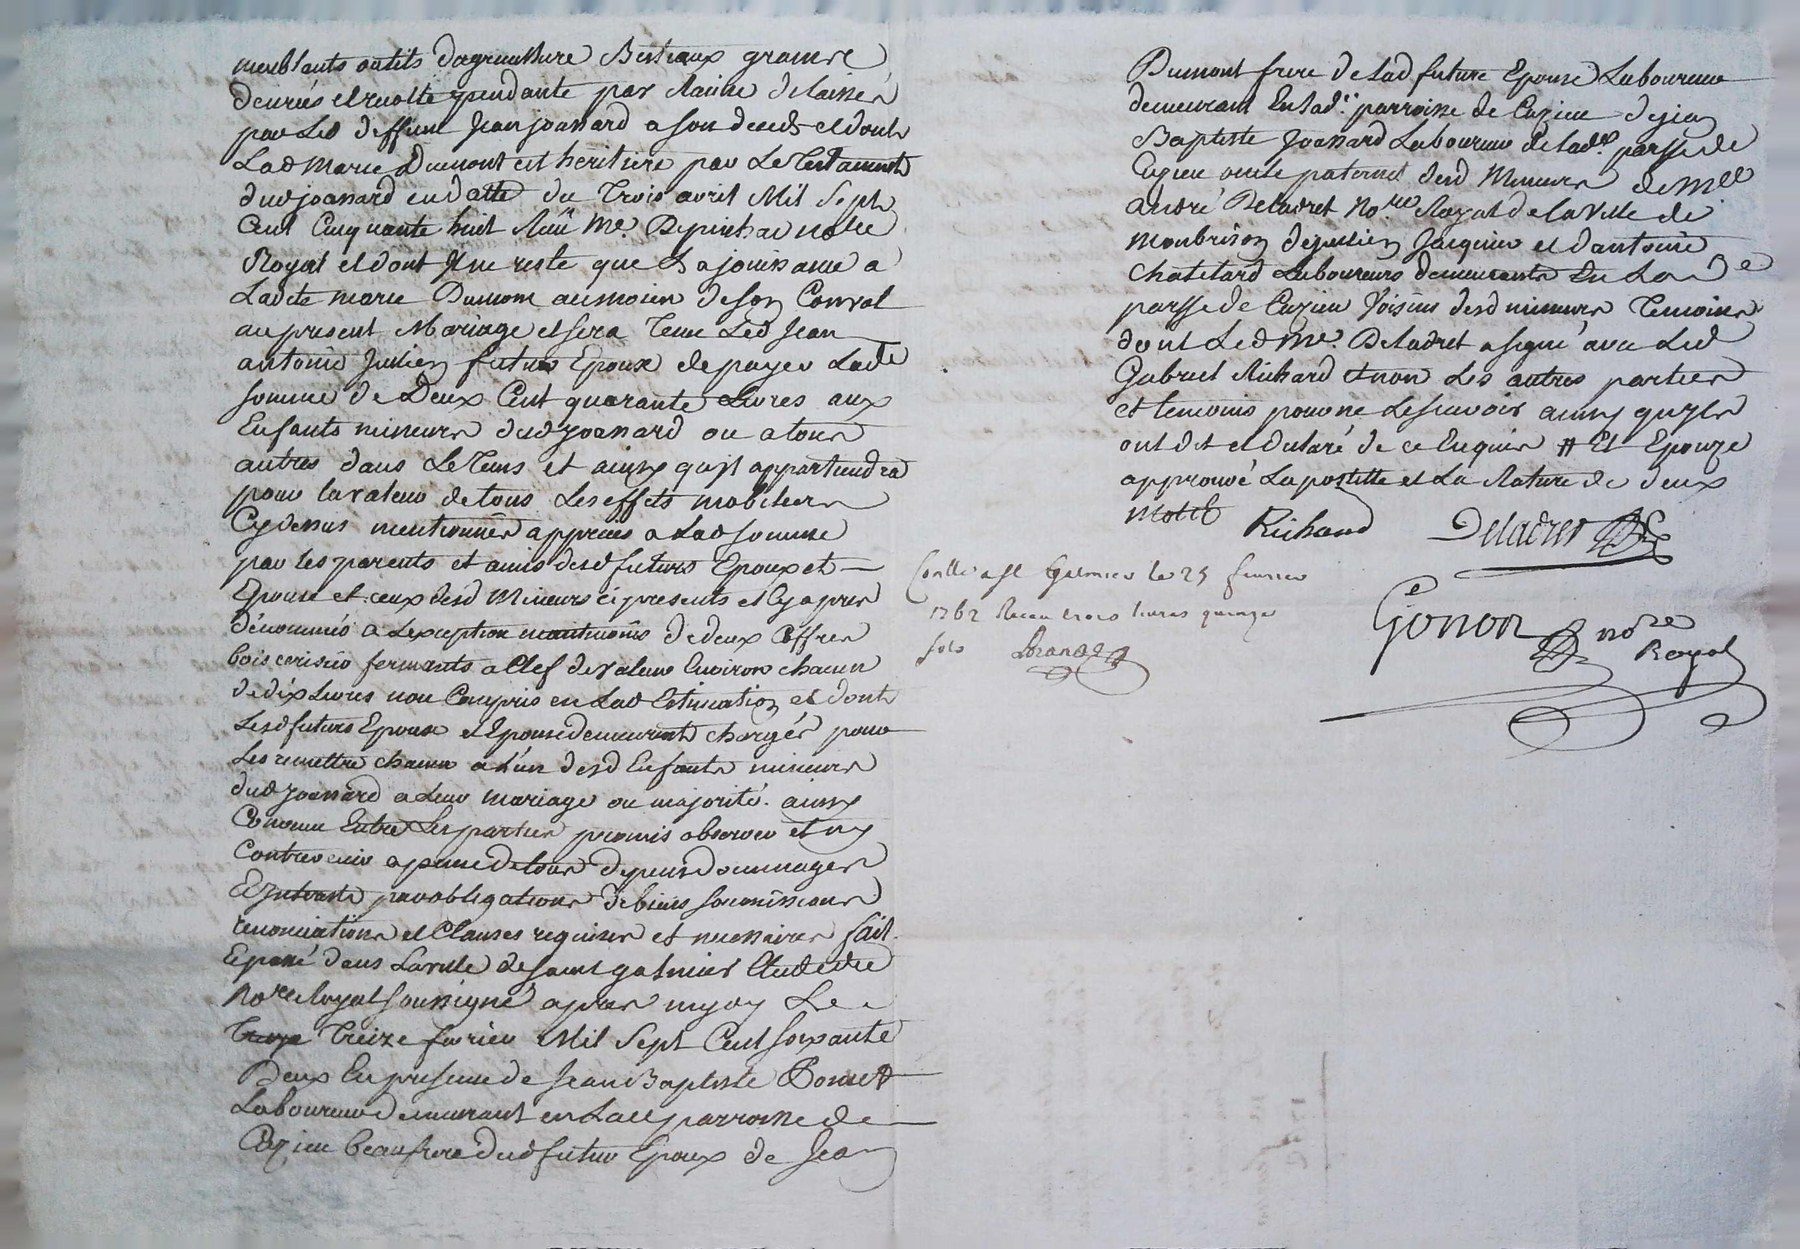 meublants outils d'agriculture Bestiaux graines
denrées et recolte pendante par Racine delaissés
par Led deffunt Jean joannard a son deceds et dont
Lad Marie Dumont est héritiere par Le Testament
dud joannard en datte du Trois avril Mil Sept
Cent Cinquante huit Me. notre
Royal et dont Jl ne reste que La jouissance a
Ladte marie Dumont au moien de son Convol
au present Mariage et sera Tenu Led Jean
antoine Jullien futur Epoux de payer Ladte
somme de Deux Cent quarante Livres aux
Enfants mineurs dud joannard ou a tous
autres dans Le Tems et ainsy qu'jl appartiendra
pour la valeur de tous Les effets mobiliers
Cy dessus mentionnés apprecies a Lad somme
par les parents et amis desd futurs Epoux et
Epouse et ceux desd Mineurs ci presents et Cy apres
dénommés a Lexception de deux Coffres
bois cerisier fermants a Clef de valeur Environ chacun
de dix Livres non Compris en Lad Estimation et dont
Lesd futurs Epoux et Epouse demeurent chargés pour
Les remettre chacun a L'un desd Enfants mineurs
dud joannard a Leur mariage ou majorité. ainsy
Convenu Entre Les parties promis observer et ny
Contrevenir a peine de tous depens dommages
par obligations de biens soumissions
renonciations et Clauses requises et necessaires fait
Epassé dans La ville de saint galmier Etude du
No.re Royal soussigné apres mydy Le
Treize fevrier Mil Sept Cent soixante
Deux En presence de Jean Baptiste
Laboureur demeurant en Lad parroisse de
Cuzieu beaufrere dud futur Epoux de Jean
Dumont frere de Lad future Epouse Laboureur
demeurant En Lad.e parroisse de Cuzieu de jean
Baptiste Joannard Laboureur de Lad.e parsse de
Cuzieu oncle paternel desd Mineurs de Me
andré Deladret No.re Royal de La Ville de
Monbrison de jullien Jacquier et d'antoine
Chatelard Laboureurs demeurants En La de
parsse de Cuzieu Voisins desd mineurs Temoins
dont Led Me. Deladret a signé avec Led
Gabriel Richard et non Les autres parties
et temoins pour ne Le scavoir ainsy qu'jls
ont dit et declaré de ce Enquis # Et Epouze
approuvé La postille et La Rature de deux
mots
Richard Deladret
Conllé a St Galmier le 25 fevrier
1762 Recu trois livres quinze
sols
Gonon no.re
Royal